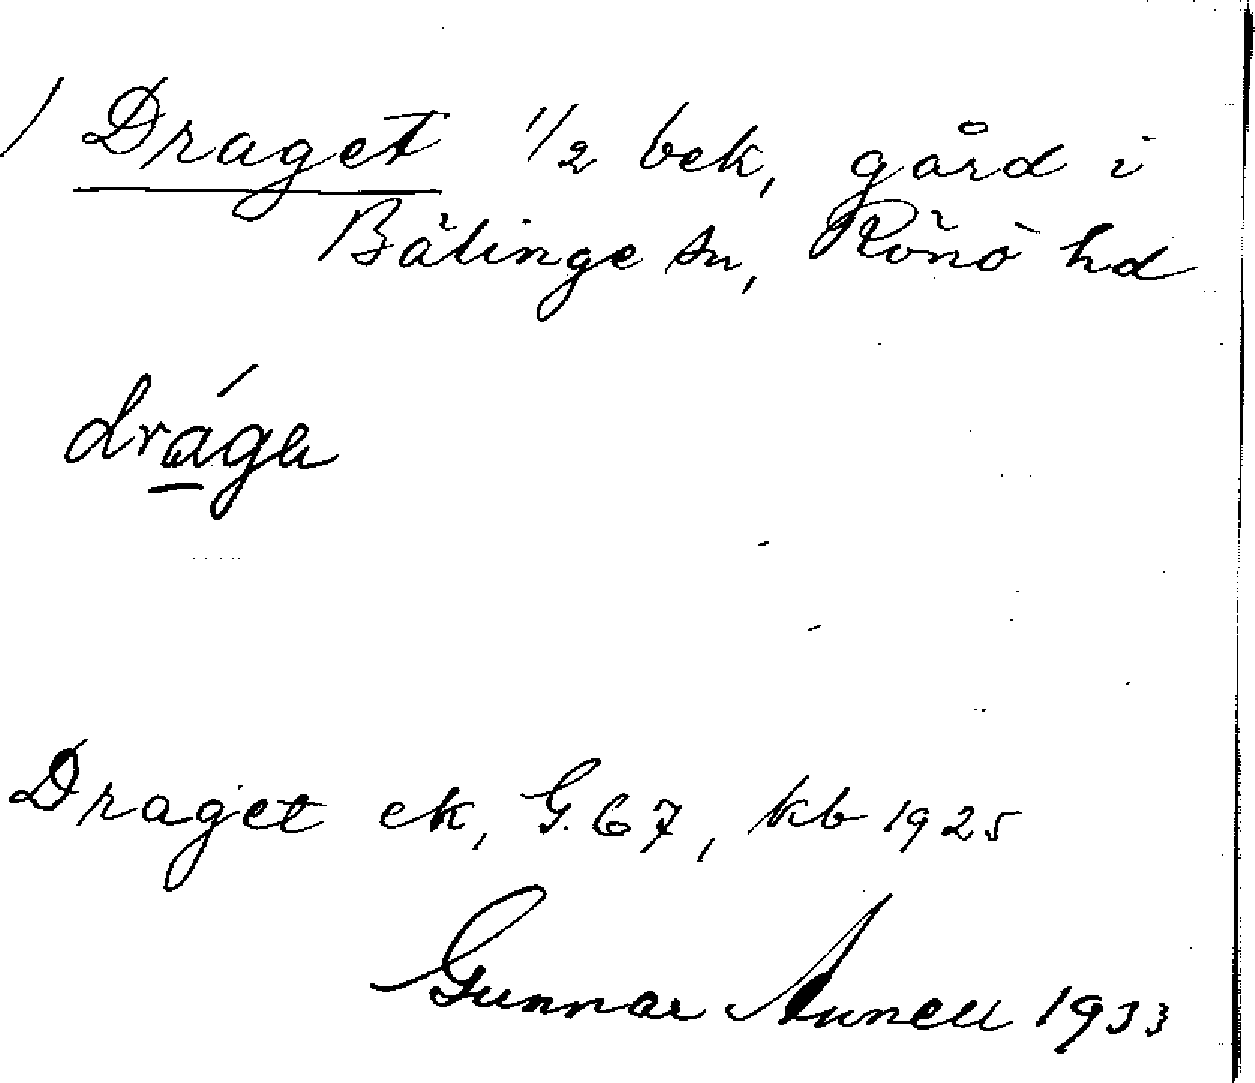 / Draget 1/2 bek, gård i
Bälinge sn, Rönö hd
drága
Draget ek, G. 67, kb 1925
Gunnar Annell 1933